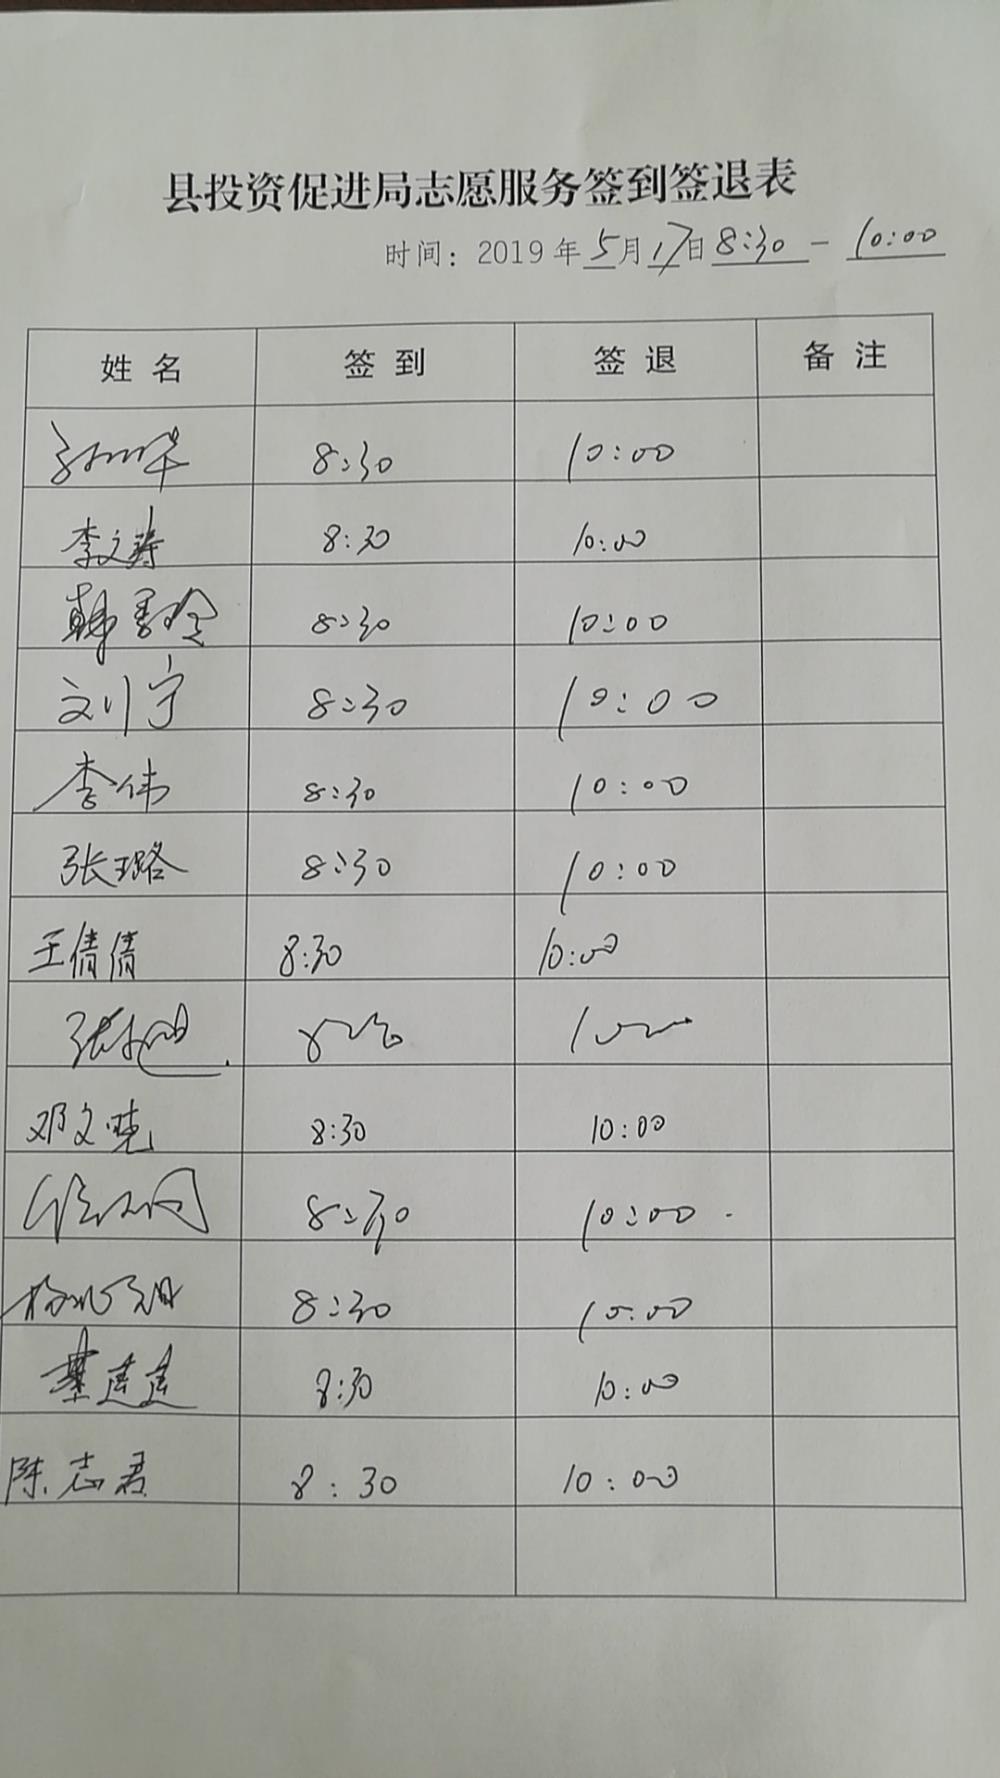 县投资促进局志愿服务签到签退表
时间：2019年5月17日8:30-10:00
姓名 签到 签退 备注
8:30 10:00
李文涛 8:30 10:00
韩 8:30 10:00
刘宁 8:30 10:00
李伟 8:30 10:00
张璐 8:30 10:00
王倩倩 8:30 10:00
张
邓文晓 8:30 10:00
8:30 10:00
杨 8:30 10:00
綦莲莲 8:30 10:00
陈志君 8:30 10:00